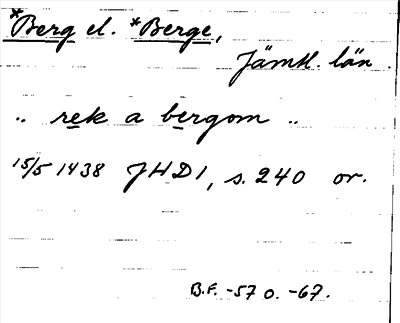 *Berg el. *Berge,
Jämtl. län.
.. rek a bergom ..
15/5 1438 JHD1, s. 240 or.
B.F. -57 o. -67.